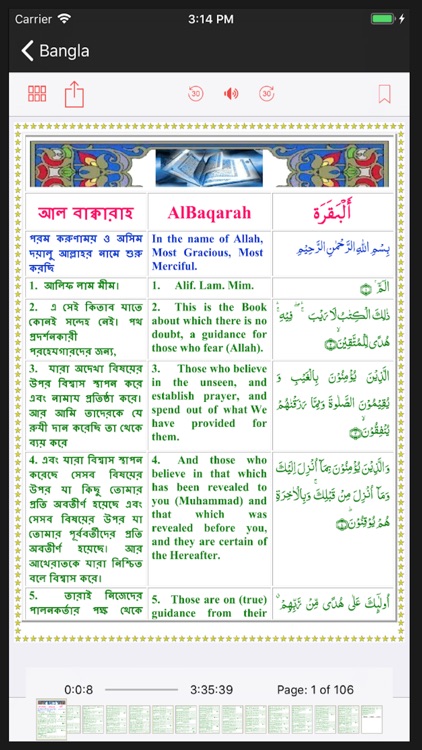 Carrier 3:14 PM
Bangla
30 30
আল বাক্বারাহ AlBaqarah اَلْبَقَرَة
পরম করুণাময় ও অসিম
দয়ালু আল্লাহর নামে শুরু
করছি
In the name of Allah,
Most Gracious, Most
Merciful.
بِسْمِ اللهِ الرَّحْمٰنِ الرَّحِيْمِ
1. আলিফ লাম মীম।
1. Alif. Lam. Mim.
الٓمّٓ ۚ﴿۱﴾
2. এ সেই কিতাব যাতে
কোনই সন্দেহ নেই। পথ
প্রদর্শনকারী
পরহেযগারদের জন্য,
2. This is the Book
about which there is no
doubt, a guidance for
those who fear (Allah).
ذٰلِكَ الْكِتٰبُ لَا رَيْبَ ۛۖ فِيْهِ ۛۚ
هُدًى لِّلْمُتَّقِيْنَ ۙ﴿۲﴾
3. যারা অদেখা বিষয়ের
উপর বিশ্বাস স্থাপন করে
এবং নামায প্রতিষ্ঠা করে।
আর আমি তাদেরকে যে
রুযী দান করেছি তা থেকে
ব্যয় করে
3. Those who believe
in the unseen, and
establish prayer, and
spend out of what We
have provided for
them.
الَّذِيْنَ يُؤْمِنُوْنَ بِالْغَيْبِ وَ
يُقِيْمُوْنَ الصَّلٰوةَ وَمِمَّا رَزَقْنٰهُمْ
يُنْفِقُوْنَ ۙ﴿۳﴾
4. এবং যারা বিশ্বাস স্থাপন
করেছে সেসব বিষয়ের
উপর যা কিছু তোমার
প্রতি অবতীর্ণ হয়েছে এবং
সেসব বিষয়ের উপর যা
তোমার পূর্ববর্তীদের প্রতি
অবতীর্ণ হয়েছে। আর
আখেরাতকে যারা নিশ্চিত
বলে বিশ্বাস করে।
4. And those who
believe in that which
has been revealed to
you (Muhammad) and
that which was
revealed before you,
and they are certain of
the Hereafter.
وَالَّذِيْنَ يُؤْمِنُوْنَ بِمَاۤ اُنْزِلَ اِلَيْكَ
وَمَاۤ اُنْزِلَ مِنْ قَبْلِكَ ۚ وَبِالْاٰخِرَةِ
هُمْ يُوْقِنُوْنَ ؕ﴿۴﴾
5. তারাই নিজেদের
পালনকর্তার পক্ষ থেকে
5. Those are on (true)
guidance from their
اُولٰٓئِكَ عَلٰى هُدًى مِّنْ رَّبِّهِمْ ۙ
0:0:8 3:35:39 Page: 1 of 106